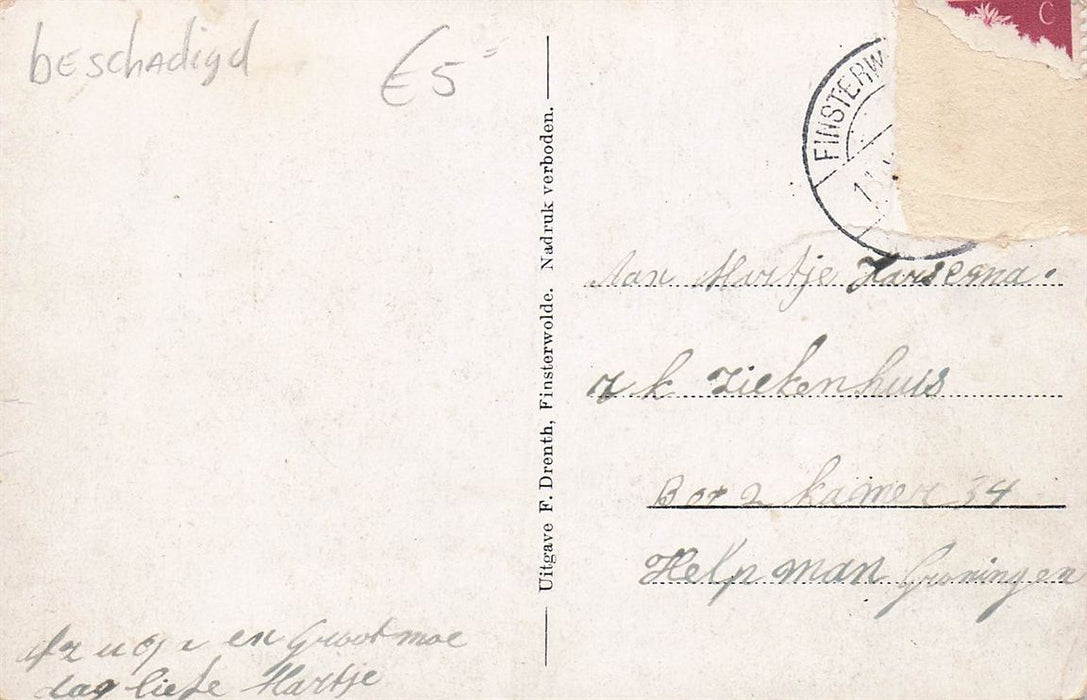 beschadigd
€ 5 =
C
FINSTERW
Uitgave F. Drenth, Finsterwolde. Nadruk verboden.
Aan Martje Harsema.
r k Ziekenhuis
Box 2 kamer 34
Helpman Groningen
en Grootmoe
dag liefe Martje